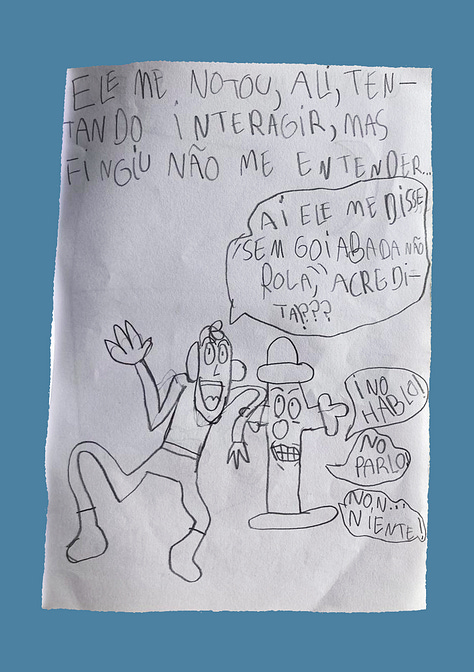 ELE ME NOTOU, ALI, TEN-
TANDO INTERAGIR, MAS
FINGIU NÃO ME ENTENDER...
AI ELE ME DISSE
"SEM GOIABADA NÃO
ROLA", ACREDI-
TA???
¡NO
HABLO!
NO
PARLO!
NON...
NIENTE!